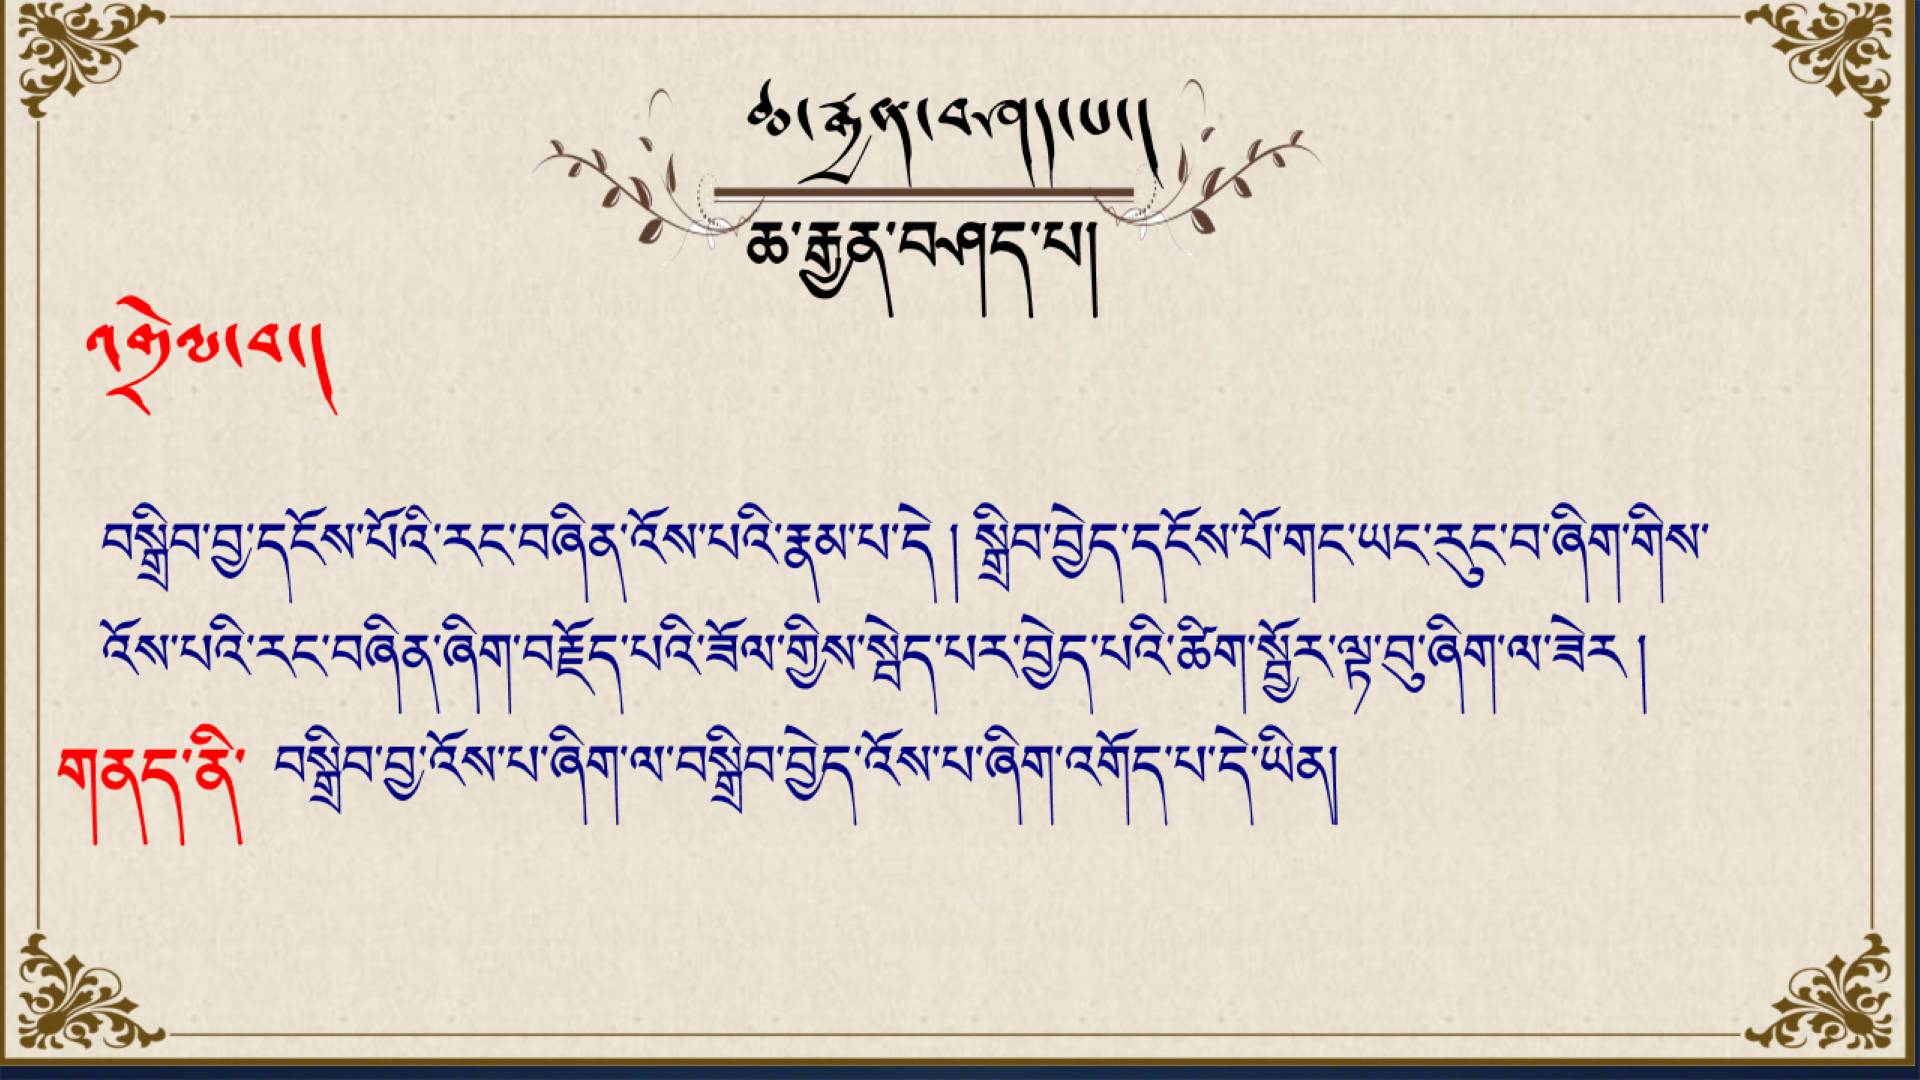 ཆ་རྒྱན་བཤད་པ།
ཆ་རྒྱན་བཤད་པ།
འགྲེལ་བ།
བསྒྲིབ་བྱ་དངོས་པོའི་རང་བཞིན་འོས་པའི་རྣམ་པ་དེ། སྒྲིབ་བྱེད་དངོས་པོ་གང་ཡང་རུང་བ་ཞིག་གིས་
འོས་པའི་རང་བཞིན་ཞིག་བརྗོད་པའི་ཟོལ་གྱིས་སྦེད་པར་བྱེད་པའི་ཚིག་སྦྱོར་ལྟ་བུ་ཞིག་ལ་ཟེར།
གནད་ནི་ བསྒྲིབ་བྱ་འོས་པ་ཞིག་ལ་བསྒྲིབ་བྱེད་འོས་པ་ཞིག་འགོད་པ་དེ་ཡིན།